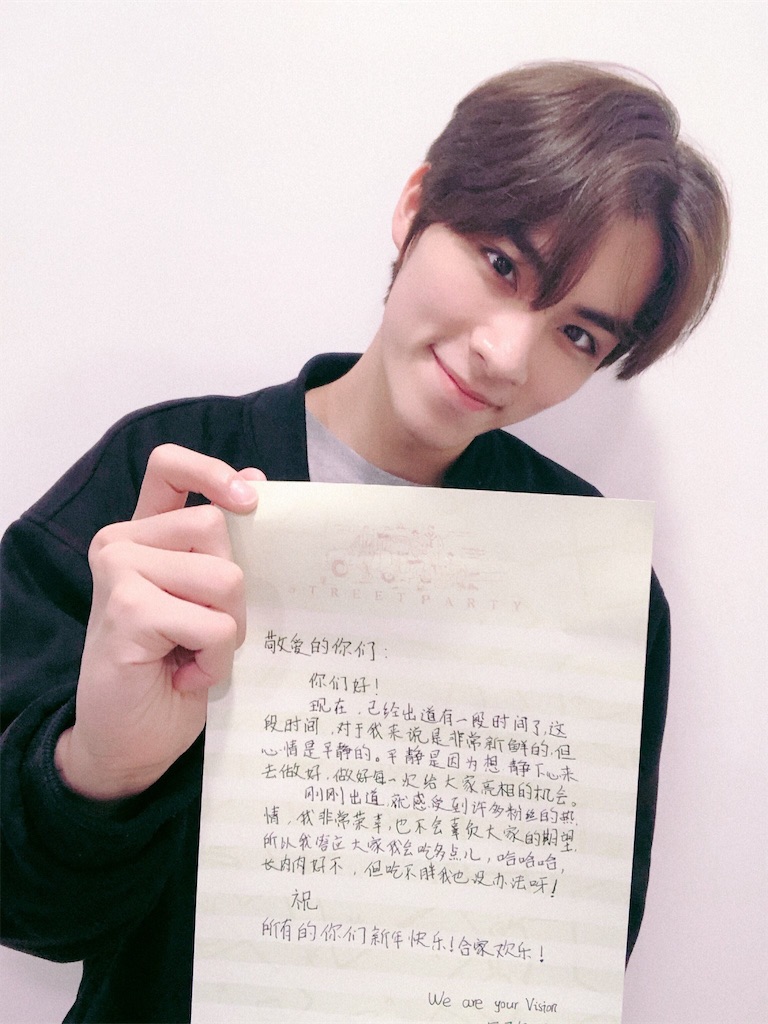 STREETPARTY
敬爱的你们：
你们好！
现在，已经出道有一段时间了，这
段时间，对于我来说是非常新鲜的，但
心情是平静的。平静是因为想静下心来
去做好，做好每一次给大家亮相的机会。
刚刚出道，就感受到许多粉丝的热
情，我非常荣幸，也不会辜负大家的期望，
所以我答应大家我会吃多点儿，哈哈哈，
长肉肉好不，但吃不胖我也没办法呀！
祝
所有的你们新年快乐！合家欢乐！
We are your Vision